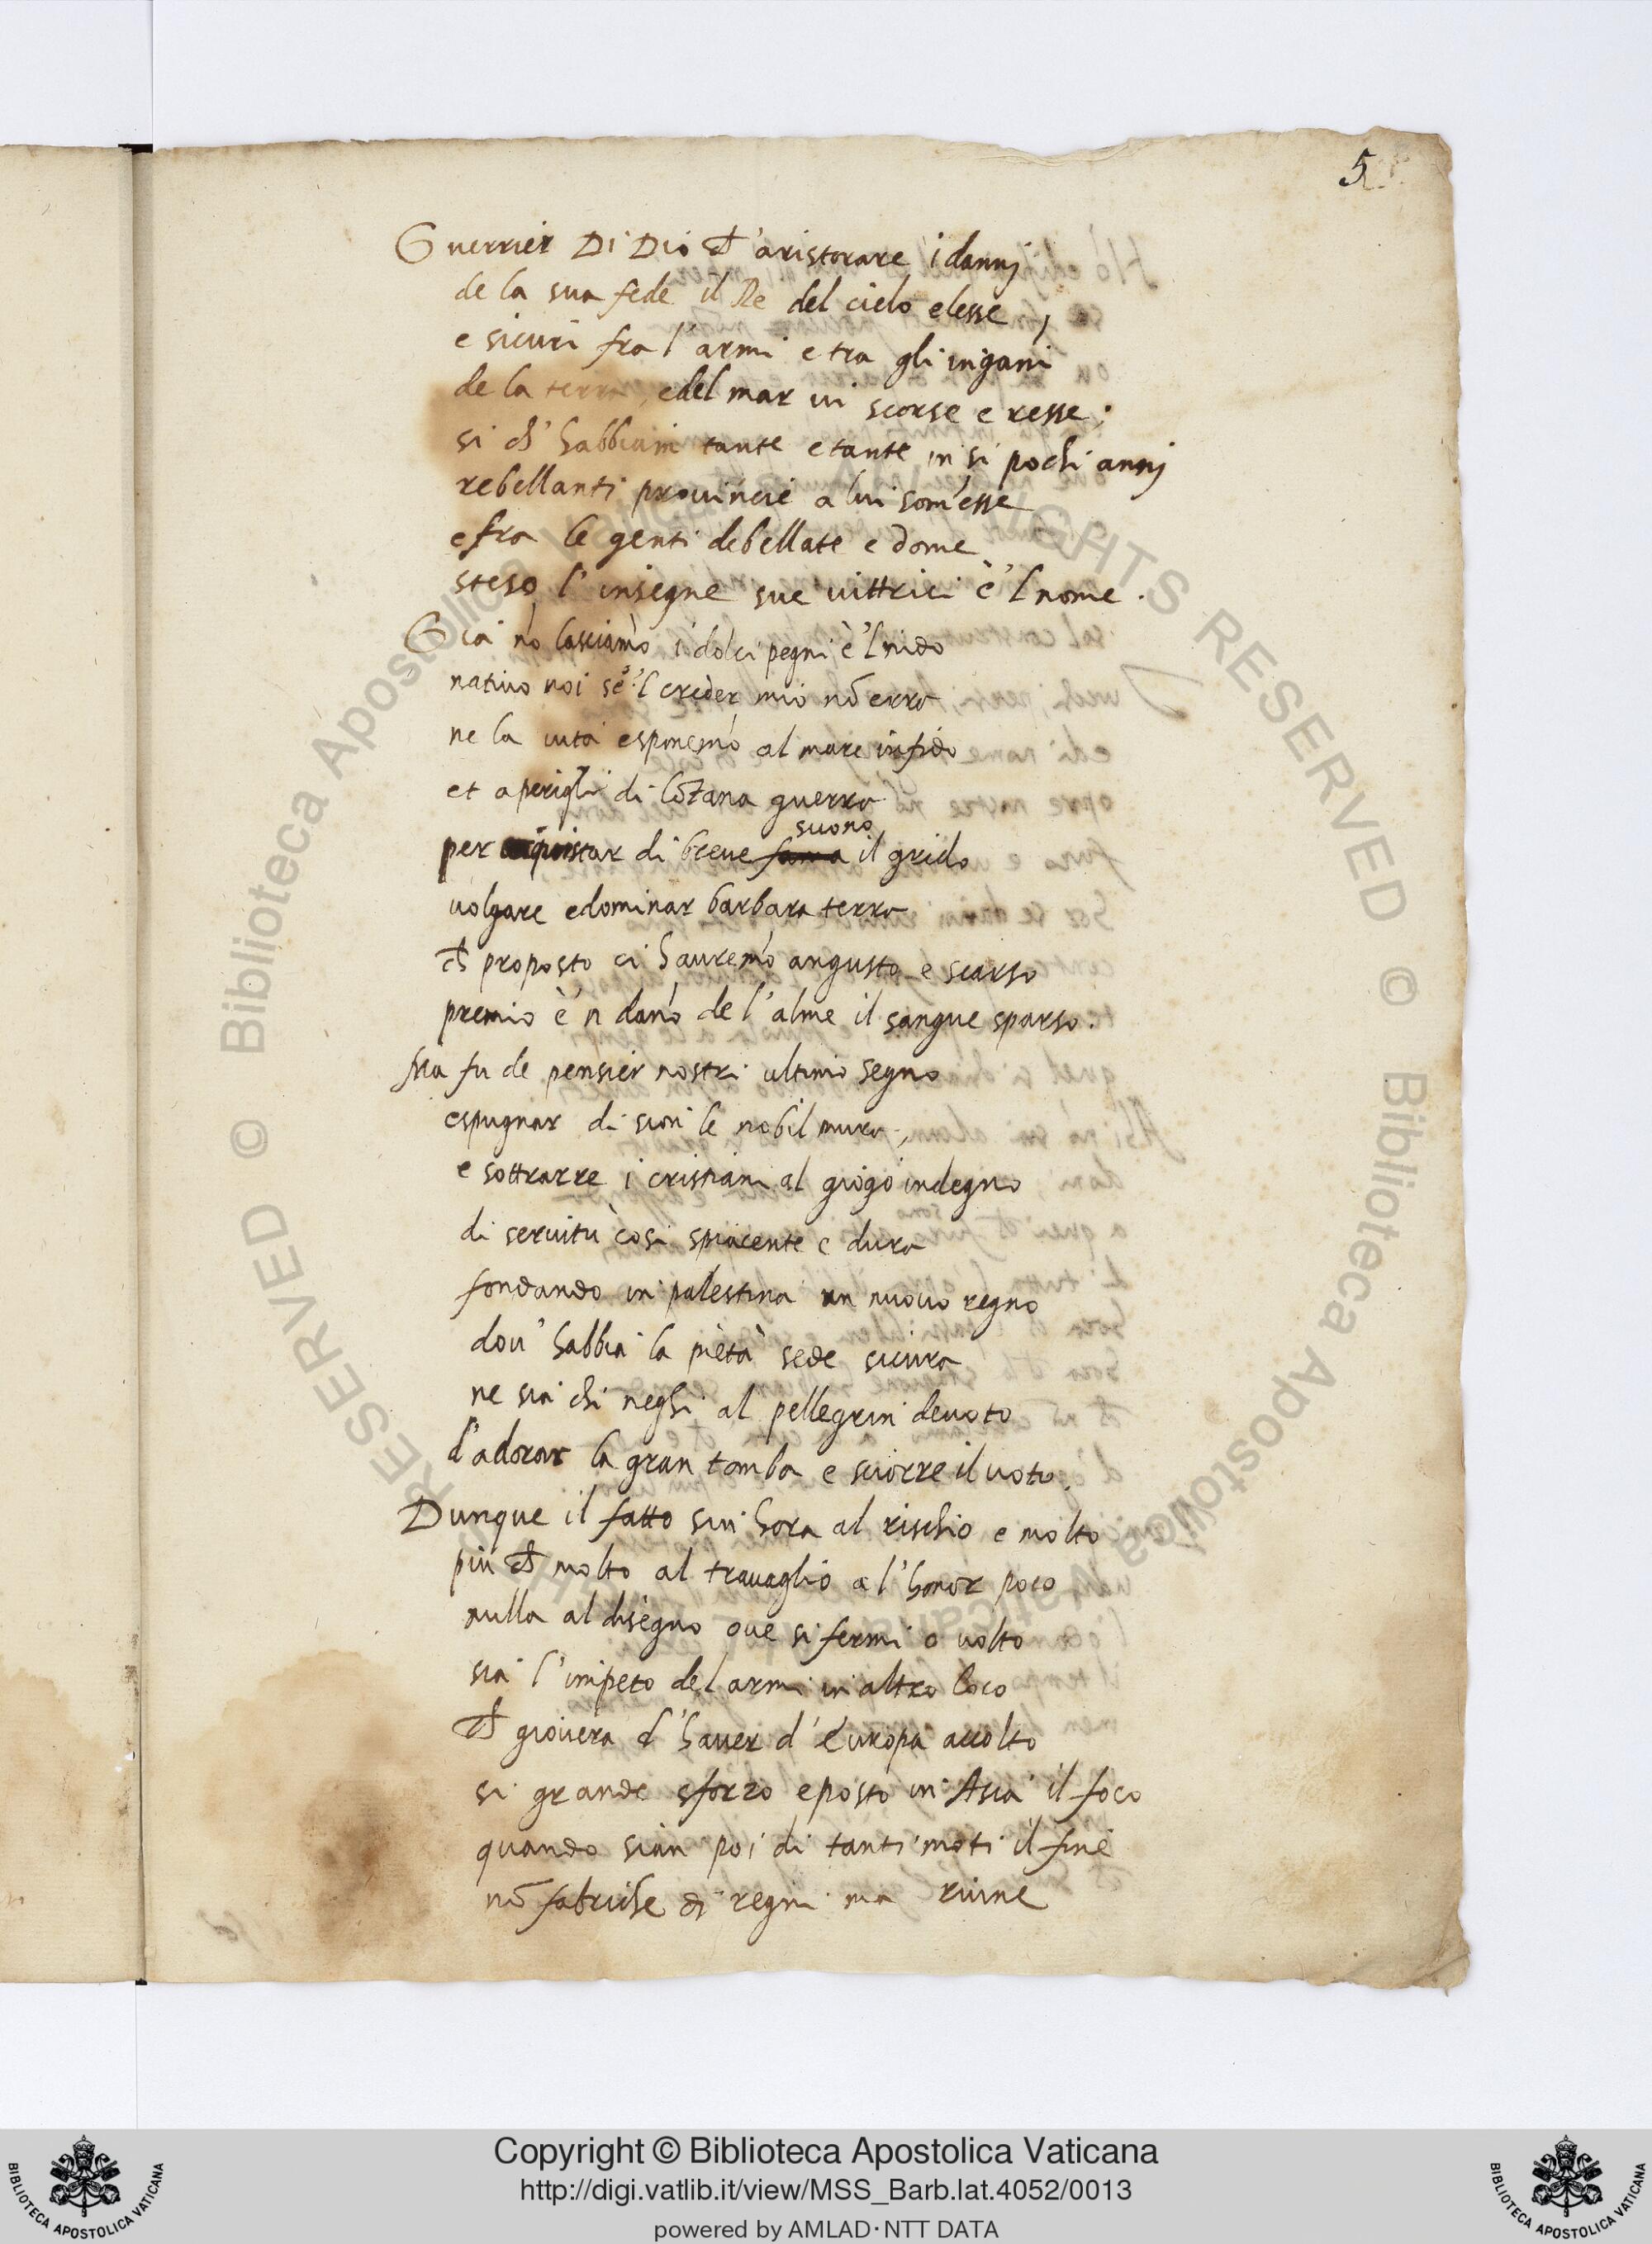 5
Guerrier Di Dio ch̃'aristorare i dannj
de la sua fede il Re del cielo elesse,
e sicuri fra l'armi e tra gli ingani
de la terra, edel mar ui scorse e resse;
si ch' habbiam tante e tante in si pochi annj
rebellanti prouincie a lui som̃esse
e fra le genti debellate e dome
steso l'insegne sue uittrici e'l nome.
Gia nõ lasciam̃o i dolci pegni e'l nido
natiuo noi se'l creder mio nõ erra
ne la uita esponem̃o al mare infido
et a perigli di lõtana guerra
suono
per aquistar di breue fama il grido
uolgare e dominar barbara terra
ch̃ proposto ci haurem̃o angusto e scarso
premio e'n dan̄o de l'alme il sangue sparso.
Ma fu de pensier nostri ultimo segno
espugnar di sion le nobil mura,
e sottrarre i cristiani al giogo indegno
di seruitù cosi spiacente e dura
fondando in palestina un nuouo regno
dou' habbia la pietà sede sicura
ne sia chi neghi al pellegrin deuoto
d'adorar la gran tomba e sciorre il uoto.
Dunque il fatto sin hora al rischio e molto
più ch̃ molto al trauaglio a l'honor poco
nulla al disegno oue si fermi o uolto
sia l'impeto del armi in altro loco
ch̃ giouera d'hauer d'Europa accolto
si grande sforzo e posto in Asia il foco
quando sian poi di tanti moti il fine
nõ fabriche di regni ma ruine
Copyright © Biblioteca Apostolica Vaticana
http://digi.vatlib.it/view/MSS_Barb.lat.4052/0013
powered by AMLAD·NTT DATA
BIBLIOTECA APOSTOLICA VATICANA
BIBLIOTECA APOSTOLICA VATICANA